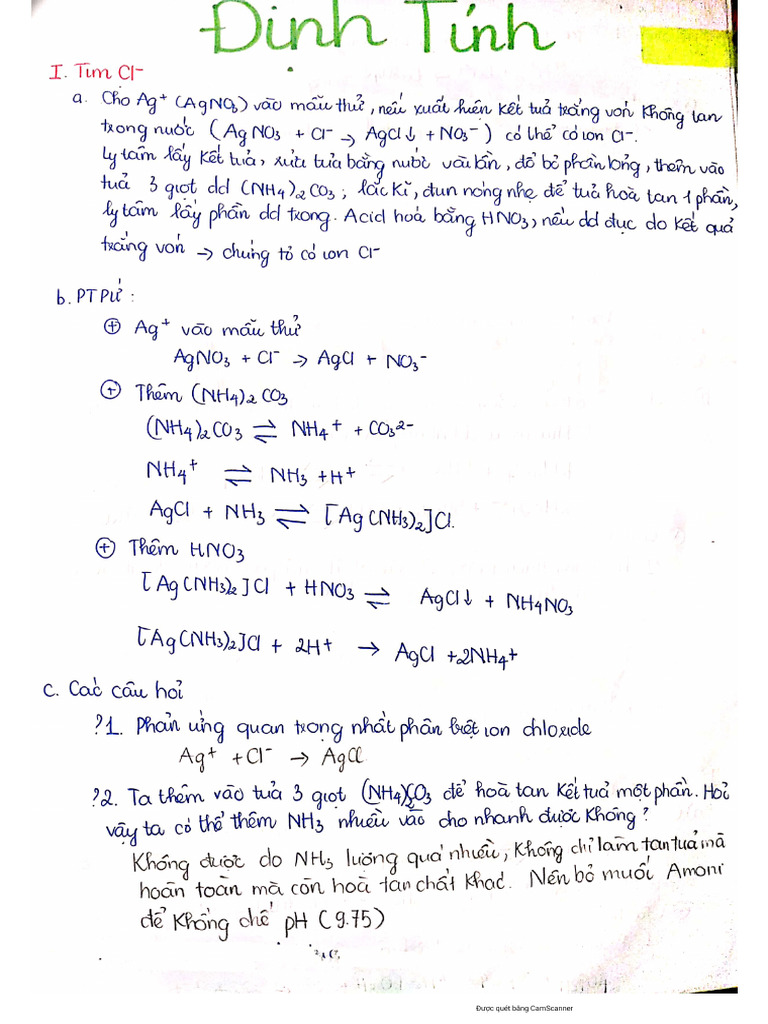 Định Tính
I. Tìm Cl⁻
a. Cho Ag⁺ (AgNO₃) vào mẫu thử, nếu xuất hiện kết tủa trắng vón không tan
trong nước (AgNO₃ + Cl⁻ → AgCl↓ + NO₃⁻) có thể có ion Cl⁻.
Ly tâm lấy kết tủa, rửa tủa bằng nước vài lần, đổ bỏ phần lỏng, thêm vào
tuả 3 giọt dd (NH₄)₂CO₃; lắc kĩ, đun nóng nhẹ để tuả hoà tan 1 phần,
ly tâm lấy phần dd trong. Acid hoá bằng HNO₃, nếu dd đục do kết quả
trắng vón → chứng tỏ có ion Cl⁻
b. PTPứ :
⊕ Ag⁺ vào mẫu thử
AgNO₃ + Cl⁻ → AgCl + NO₃⁻
⊕ Thêm (NH₄)₂CO₃
(NH₄)₂CO₃ ⇌ NH₄⁺ + CO₃²⁻
NH₄⁺ ⇌ NH₃ + H⁺
AgCl + NH₃ ⇌ [Ag(NH₃)₂]Cl.
⊕ Thêm HNO₃
[Ag(NH₃)₂]Cl + HNO₃ ⇌ AgCl↓ + NH₄NO₃
[Ag(NH₃)₂]Cl + 2H⁺ → AgCl + 2NH₄⁺
C. Các câu hỏi
?1. Phản ứng quan trọng nhất phân biệt ion chloride
Ag⁺ + Cl⁻ → AgCl
?2. Ta thêm vào tuả 3 giọt (NH₄)₂CO₃ để hoà tan kết tuả một phần. Hỏi
vậy ta có thể thêm NH₃ nhiều vào cho nhanh được không?
Không được do NH₃ lượng quá nhiều, không chỉ làm tan tuả mà
hoàn toàn mà còn hoà tan chất khác. Nên bỏ muối Amoni
để khống chế pH (9.75)
Được quét bằng CamScanner